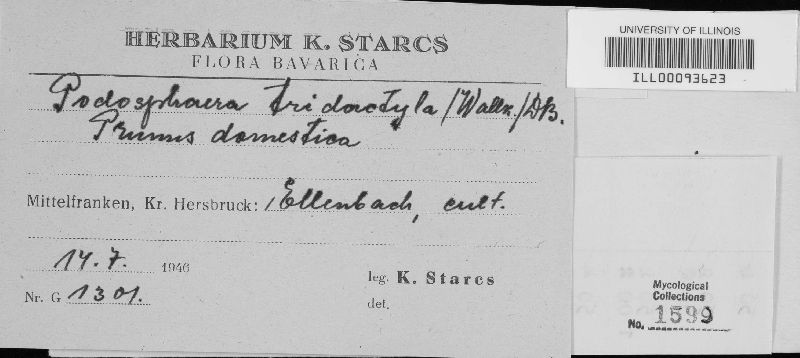 HERBARIUM K. STARCS
FLORA BAVARICA
Podosphaera tridactyla /Wallr./ DB.
Prunus domestica
Mittelfranken, Kr. Hersbruck: Ellenbach, cult.
14. 7. 1946
leg. K. Starcs
Nr. G 1301.
det.
UNIVERSITY OF ILLINOIS
ILL00093623
Mycological
Collections
No. 1599